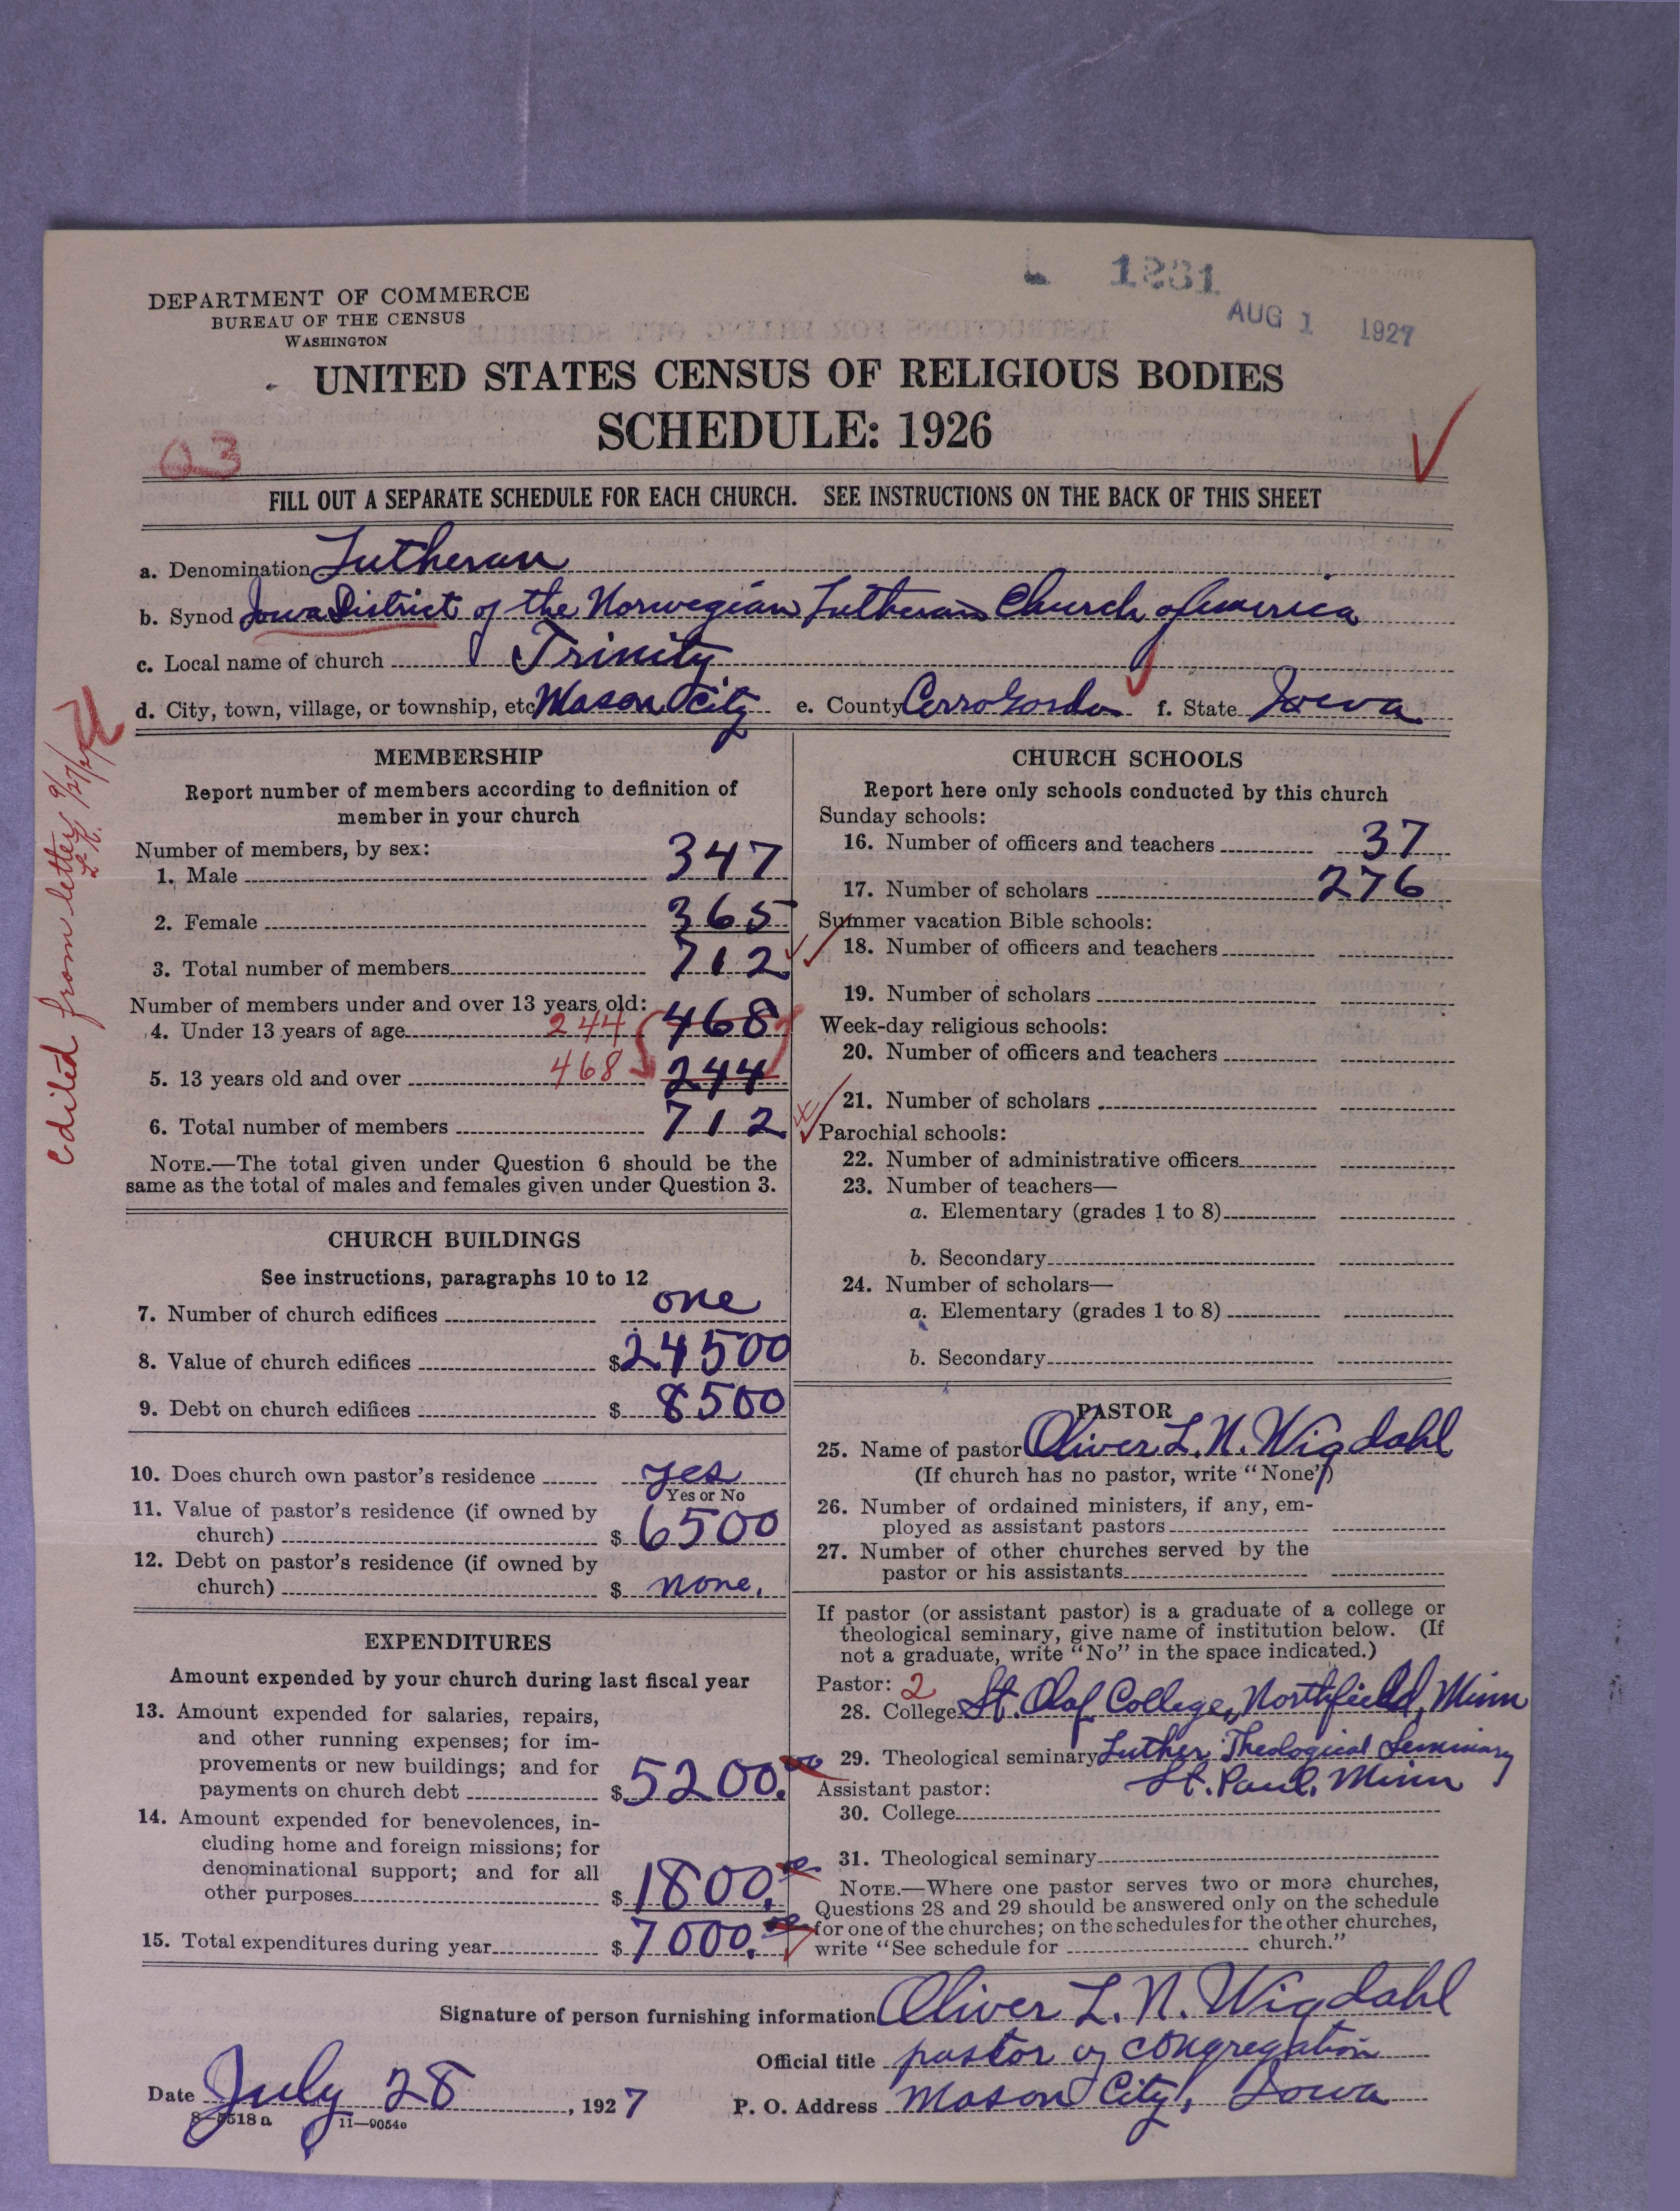 1231
AUG 1 1927
DEPARTMENT OF COMMERCE
BUREAU OF THE CENSUS
WASHINGTON
UNITED STATES CENSUS OF RELIGIOUS BODIES
SCHEDULE: 1926
03
FILL OUT A SEPARATE SCHEDULE FOR EACH CHURCH. SEE INSTRUCTIONS ON THE BACK OF THIS SHEET
a. Denomination Lutheran
b. Synod Iowa District of the Norwegian Lutheran Church of America
c. Local name of church Trinity
d. City, town, village, or township, etc. Mason City e. County Cerro Gordo f. State Iowa
edited from letter
MEMBERSHIP
Report number of members according to definition of
member in your church
Number of members, by sex:
1. Male 347
2. Female 365
3. Total number of members 712
Number of members under and over 13 years old:
4. Under 13 years of age 244 468
5. 13 years old and over 468 244
6. Total number of members 712
NOTE.—The total given under Question 6 should be the
same as the total of males and females given under Question 3.
CHURCH BUILDINGS
See instructions, paragraphs 10 to 12
7. Number of church edifices one
8. Value of church edifices $24500
9. Debt on church edifices $8500
10. Does church own pastor's residence yes
Yes or No
11. Value of pastor's residence (if owned by
church) $6500
12. Debt on pastor's residence (if owned by
church) $none.
EXPENDITURES
Amount expended by your church during last fiscal year
13. Amount expended for salaries, repairs,
and other running expenses; for im-
provements or new buildings; and for
payments on church debt $5200.00
14. Amount expended for benevolences, in-
cluding home and foreign missions; for
denominational support; and for all
other purposes $1800.00
15. Total expenditures during year $7000.00
CHURCH SCHOOLS
Report here only schools conducted by this church
Sunday schools:
16. Number of officers and teachers 37
17. Number of scholars 276
Summer vacation Bible schools:
18. Number of officers and teachers
19. Number of scholars
Week-day religious schools:
20. Number of officers and teachers
21. Number of scholars
Parochial schools:
22. Number of administrative officers
23. Number of teachers—
a. Elementary (grades 1 to 8)
b. Secondary
24. Number of scholars—
a. Elementary (grades 1 to 8)
b. Secondary
PASTOR
25. Name of pastor Oliver L. N. Wigdahl
(If church has no pastor, write "None")
26. Number of ordained ministers, if any, em-
ployed as assistant pastors
27. Number of other churches served by the
pastor or his assistants
If pastor (or assistant pastor) is a graduate of a college or
theological seminary, give name of institution below. (If
not a graduate, write "No" in the space indicated.)
Pastor: 2
28. College St. Olaf College, Northfield, Minn
29. Theological seminary Luther Theological Seminary
St. Paul, Minn
Assistant pastor:
30. College
31. Theological seminary
NOTE.—Where one pastor serves two or more churches,
Questions 28 and 29 should be answered only on the schedule
for one of the churches; on the schedules for the other churches,
write "See schedule for church."
Signature of person furnishing information Oliver L. N. Wigdahl
Official title pastor of congregation
Date July 28, 1927 P. O. Address Mason City, Iowa
8-5518a 11—9054e